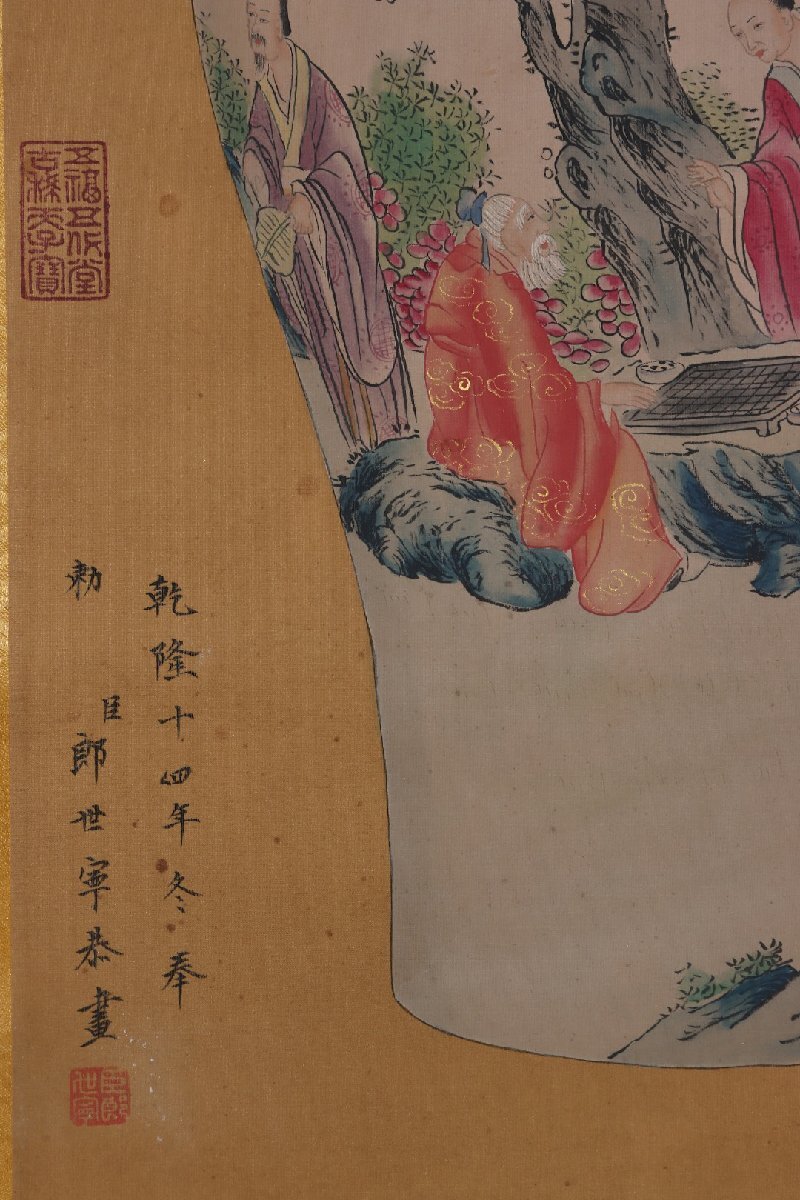 乾隆十四年冬奉
勅
臣郎世寧恭畫
五福五代堂
古稀天子寶
臣郎
世寧